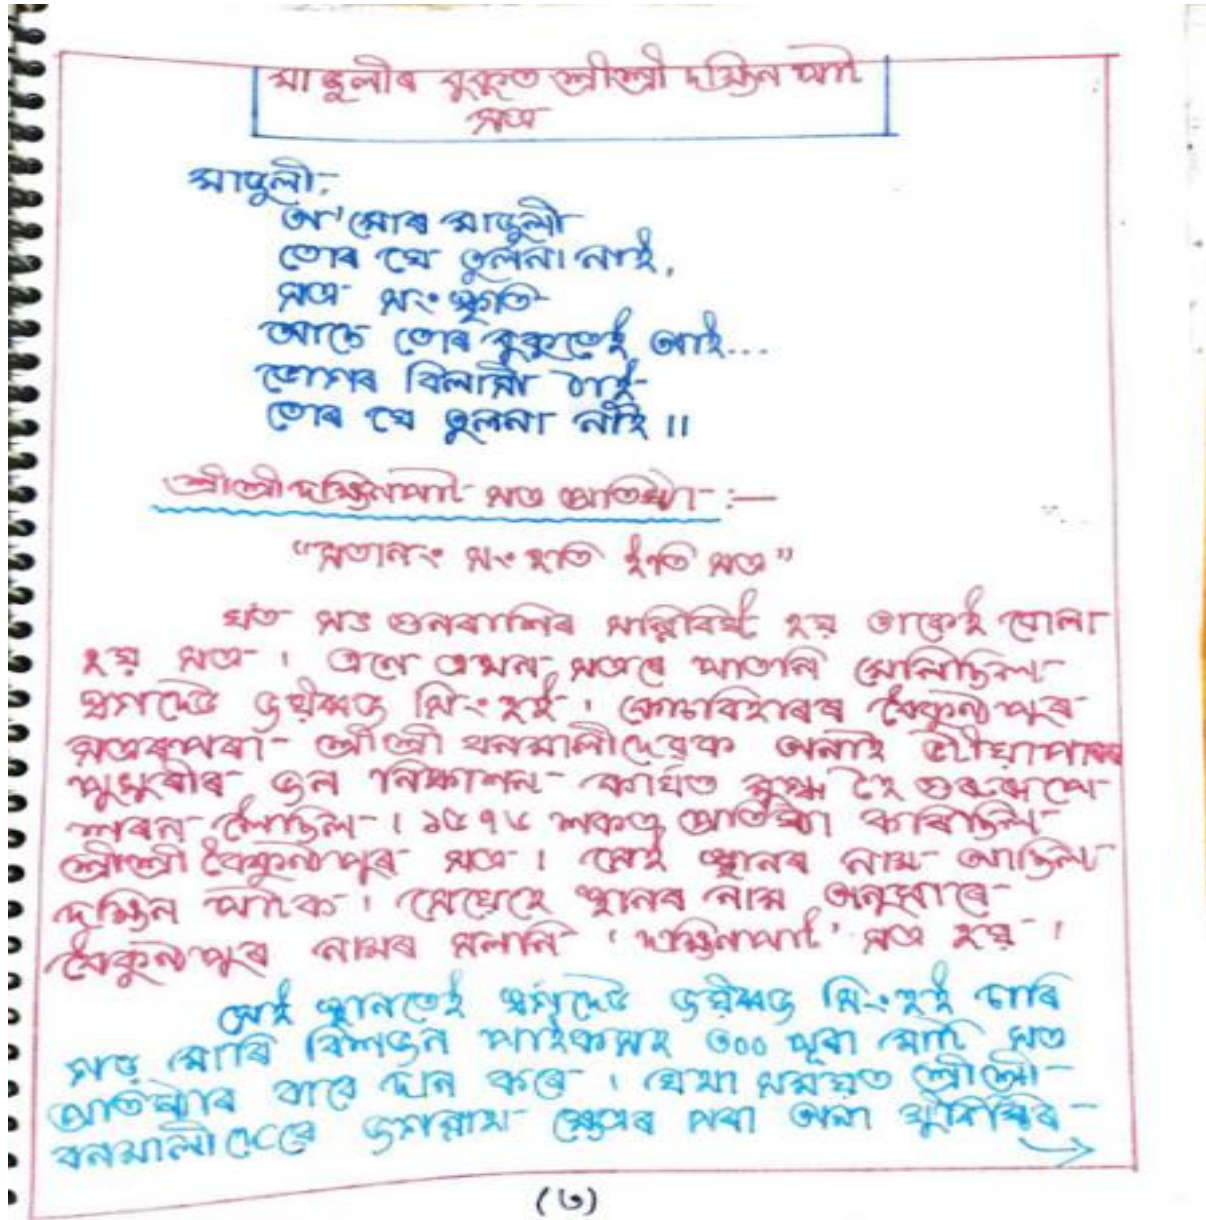 মাজুলীৰ বুকুত শ্ৰীশ্ৰী দক্ষিন পাট
সত্ৰ
মাজুলী,
অ' মোৰ মাজুলী
তোৰ যে তুলনা নাই,
সত্ৰ সংস্কৃতি
আছে তোৰ বুকুতেই আই...
ভোগৰ বিলাসী ঠাই
তোৰ যে তুলনা নাই ॥
শ্ৰীশ্ৰী দক্ষিনপাট সত্ৰ প্ৰতিষ্ঠা :—
“সতানং সংহতি ইতি সত্ৰ”
য'ত সৎ গুনৰাশিৰ সন্নিবিষ্ট হয় তাকেই বোলা
হয় সত্ৰ । এনে এখন সত্ৰৰে পাতনি মেলিছিল
স্বৰ্গদেউ জয়ধ্বজ সিংহই । কোচবিহাৰৰ বৈকুণ্ঠপুৰ
সত্ৰৰপৰা শ্ৰীশ্ৰী বনমালীদেৱক অনাই
পুখুৰীৰ জল নিষ্কাশন কাৰ্যত মুগ্ধ হৈ গুৰুৰূপে
শৰন লৈছিল । ১৫৭৫ শকত প্ৰতিষ্ঠা কৰিছিল
শ্ৰীশ্ৰী বৈকুণ্ঠপুৰ সত্ৰ । সেই স্থানৰ নাম আছিল
দক্ষিন পাটক । সেয়েহে স্থানৰ নাম অনুসাৰে
বৈকুণ্ঠপুৰ নামৰ সলনি ‘দক্ষিনপাট’ সত্ৰ হয় ।
সেই স্থানতেই স্বৰ্গদেউ জয়ধ্বজ সিংহই চাৰি
বিশজন পাইকসহ ৩০০ পূৰা মাটি সত্ৰ
প্ৰতিষ্ঠাৰ বাবে দান কৰে । সময়ত শ্ৰীশ্ৰী
বনমালীদেৱে জগন্নাথ ক্ষেত্ৰৰ পৰা অনা
(৬)